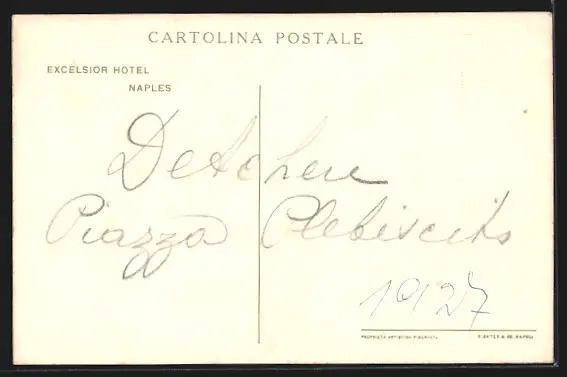 CARTOLINA POSTALE
EXCELSIOR HOTEL
NAPLES
Detchen
Piazza Plebiscito
1927
PROPRIETÀ ARTISTICA RISERVATA
RICHTER & CO. NAPOLI